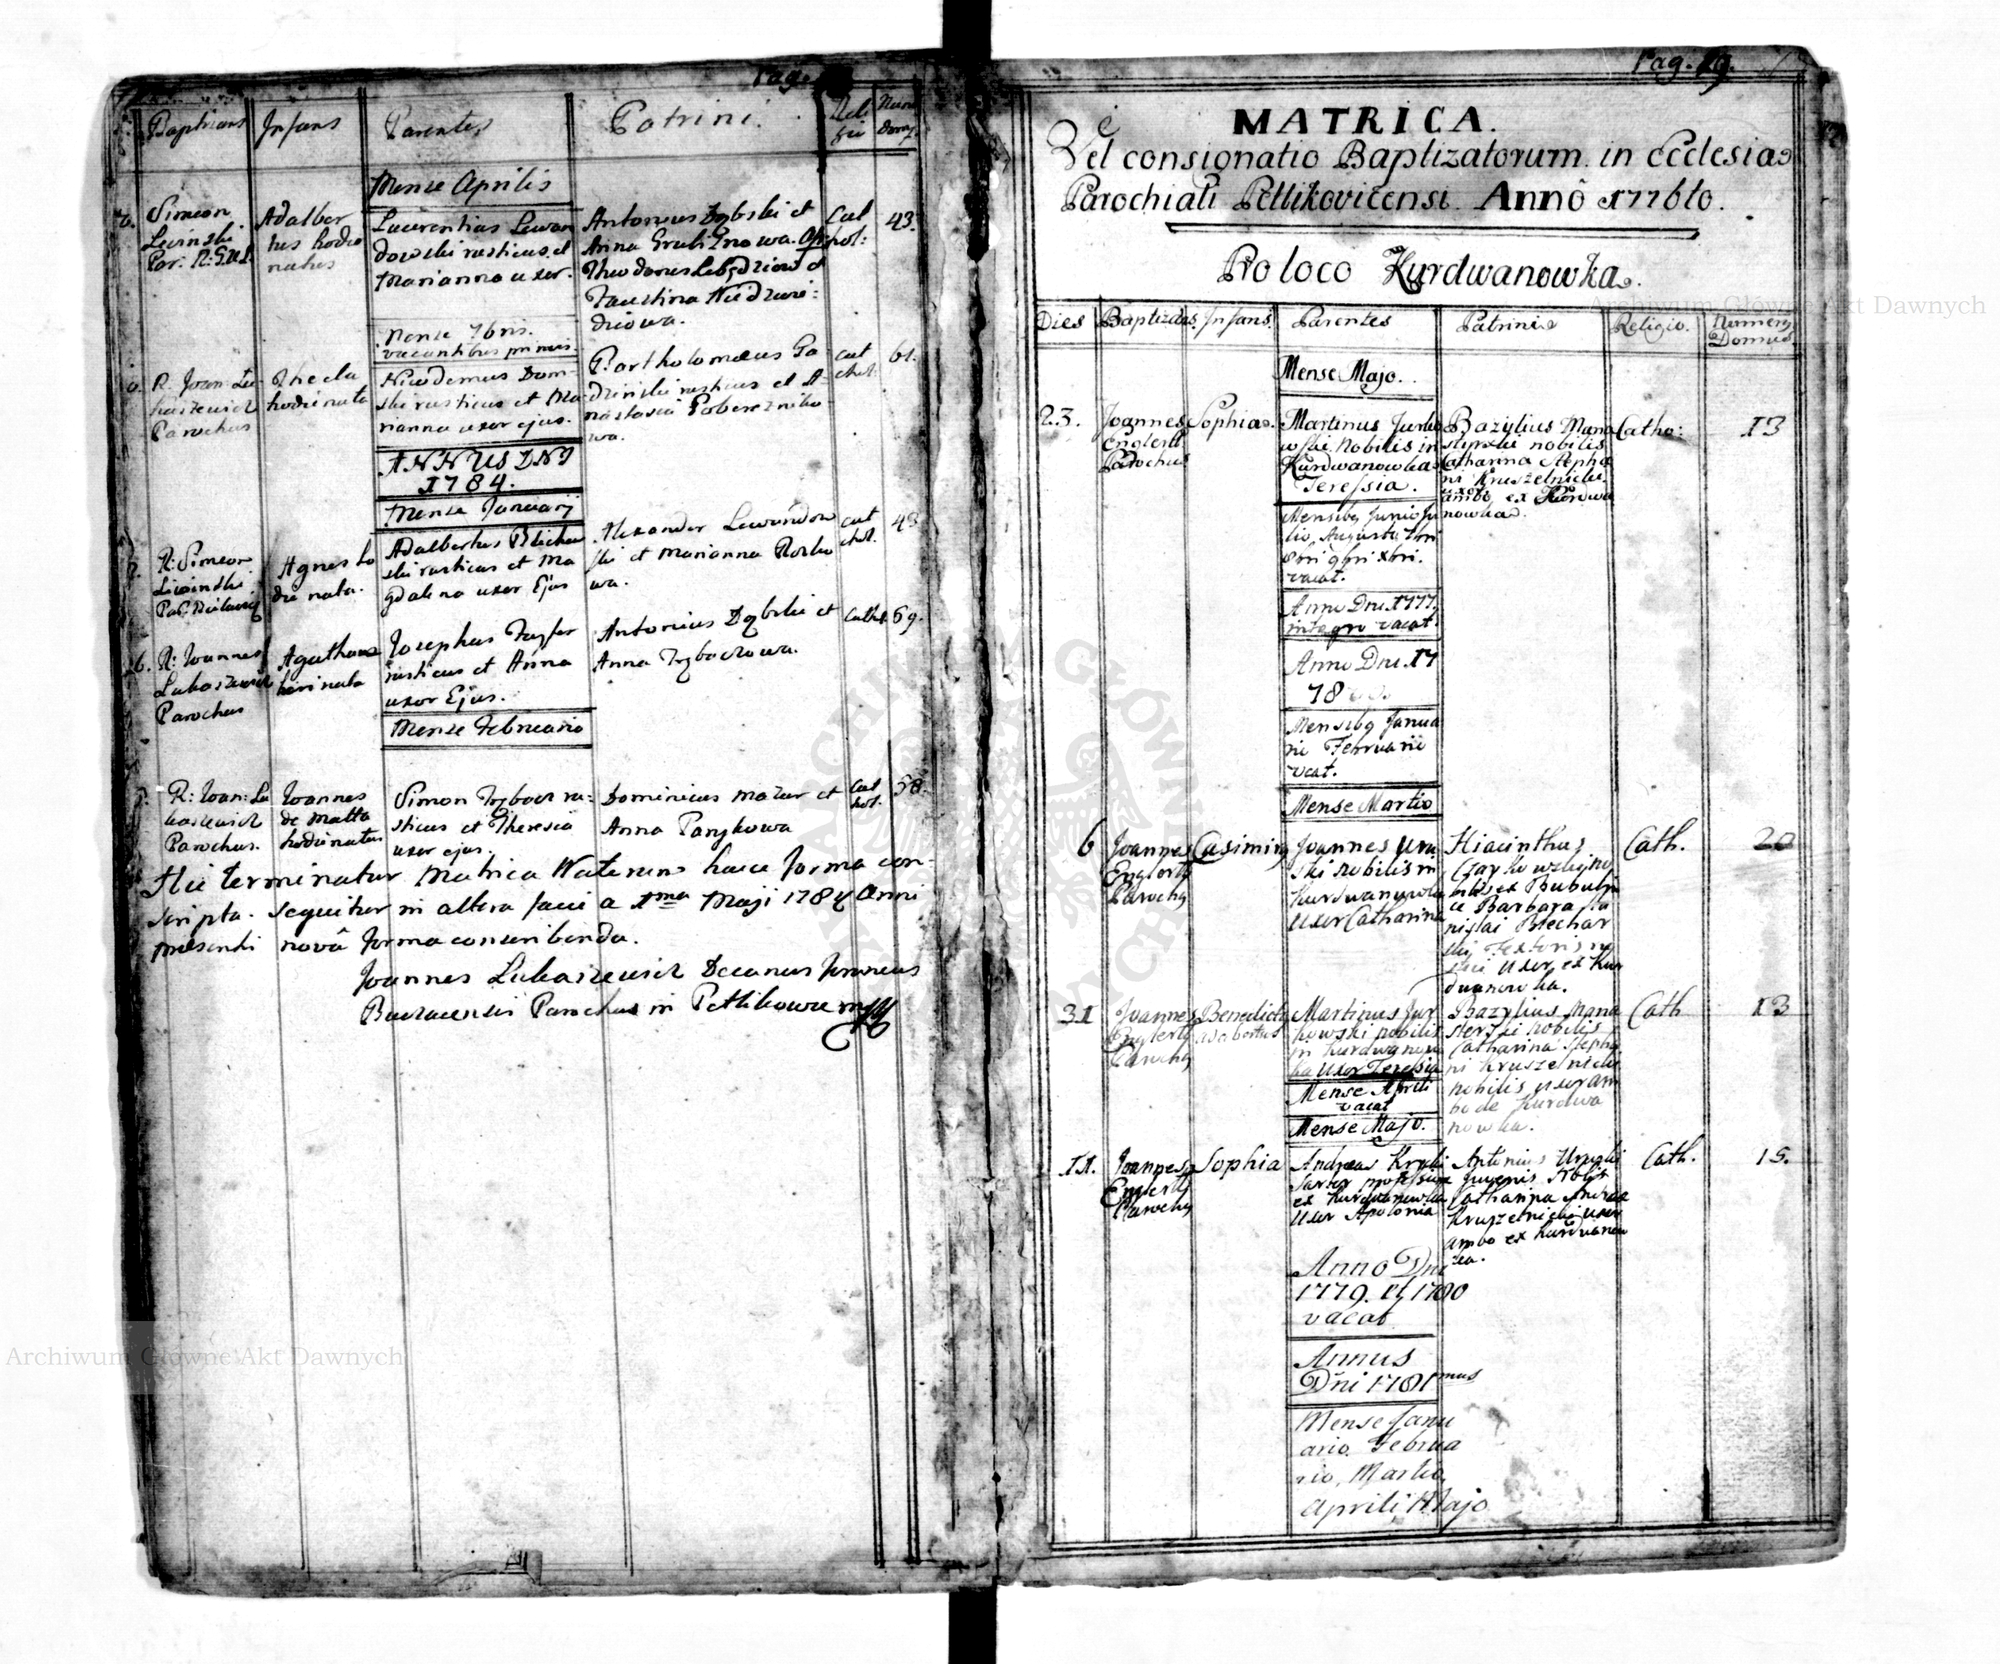 Pag.
Baptisans
Infans
Parentes
Patrini.
Reli
gio
Num
Domq
Mense Aprilis
Simeon
Levinski
Par: R: G: U: L
Adalber
tus hodie
natus
Laurentius Lewan
dowski rusticus et
Marianna uxor.
Antonius Dąbski et
Anna
Theodorus et
Faustina
dziowa.
Cat
hol:
43.
Mense 7bris.
vacantibus primis.
R. Joan: Lu
kasiewicz
Parochus
Thecla
hodie nata
Nicodemus Dom-
ski rusticus et Ma
rianna uxor ejus.
Bartholomæus Go-
dzinski rusticus et A-
nastasia Poberezniko-
wa.
cat
chol.
61.
ANNUS DNI
1784.
Mense Januarij
R: Simeon
Liwinski
Agnes ho
die nata.
Adalbertus Blicha
ski rusticus et Ma
gdalena uxor Ejus
Alexander Lewandow
ski et Marianna
wa.
cat
chol.
6. R: Joannes
Lukasiewicz
Parochus
Agatha
heri nata
Josephus
rusticus et Anna
uxor Ejus.
Antonius Dąbski et
Anna
Cathol. 69.
Mense Februario
R: Joan: Lu
kasiewicz
Parochus.
Joannes
de Matta
hodie natus
Simon ru-
sticus et Theresia
uxor ejus.
Dominicus Mazur et
Anna Panykowa
Cat
hol.
58.
Hic terminatur Matrica Natorum hacce forma con-
scripta. sequitur in altera facie a 1ma Maji 1784 Anni
præsenti novâ forma conscribenda.
Joannes Lukasiewicz Decanus foraneus
Buczacensis Parochus in Petlikowce mpp
Pag. 19.
MATRICA.
Vel consignatio Baptizatorum in Ecclesia
Parochiali Petlikovicensi Annô 1776to.
Pro loco Kurdwanowka.
Dies
Baptizans
Infans.
Parentes
Patrini
Religio.
Numerq
Domus
Mense Majo.
23.
Joannes
Englert
Parochus
Sophia.
Martinus Jurko
wski Nobilis in
Kurdwanowka
Teressia.
Bazylius Mana
styrski nobilis
Catharina Stepha
ni Kruszelnicki
uxor
ambo ex Kurdwa
nowka.
Catho:
13
Mensibq Junio Ju
lio Augusto 7bri
8bri 9bri xbri.
vacat.
Anno Dni. 1777.
integro vacat.
Anno Dni. 17
78
Mensibq Janua
rio Februario
vcat.
Mense Martio
6
Joannes
Englert
Parochq
Casimirq
Joannes Uru
ski Nobilis in
Kurdwanowka
Uxor Catharina
Hiacinthus
Czaykowski no
bilis ex Bubulin
ce Barbara Sta
nislai Blechar
ski Textoris
Uxor ex Kur
dwanowka.
Cath.
20
31
Joannes
Englert
Parochq
Benedictq
Adalbertus
Martinus Jur
kowski nobilis
in Kurdwanow
ka Uxor Teresia
Bazylius Mana
sterski nobilis
Catharina Stepha
ni Kruszelnicki
nobilis uxor am
bo de Kurdwa
nowka.
Cath
13
Mense Aprili
vacat
Mense Majo.
11.
Joannes
Englert
Parochq
Sophia
Andreas
Sartor professione
ex Kurdwanowka
Uxor Apolonia
Antonius Uruski
Juvenis Nobilis
Catharina Andreæ
Kruszelnicki uxor
ambo ex Kurdwanow
ka.
Cath.
15.
Anno Dni
1779. et 1780
vacat
Annus
Dni 1781mus
Mense Janu
ario Februa
rio, Martio,
Aprili, Majo
Archiwum Główne Akt Dawnych
Archiwum Główne Akt Dawnych